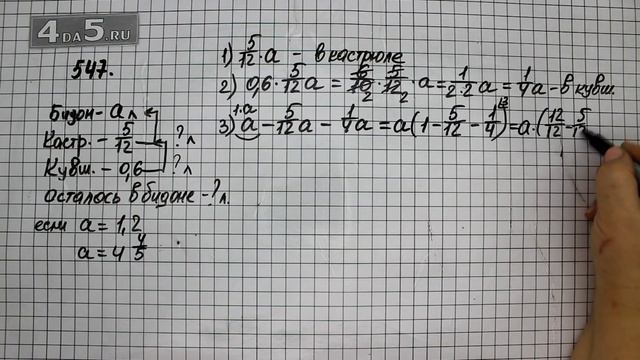 4DA5.RU
547.
Бидон - a л
Кастр. - 5/12 ? л
Кувш. - 0,6 ? л
Осталось в бидоне - ? л.
если a = 1,2
a = 4 4/5
1) 5/12 · a - в кастрюле
2) 0,6 · 5/12 a = 6/10 · 5/12 · a = 1/(2·2) a = 1/4 a - в кувш.
3) a - 5/12 a - 1/4 a = a (1 - 5/12 - 1/4) = a · (12/12 - 5/12